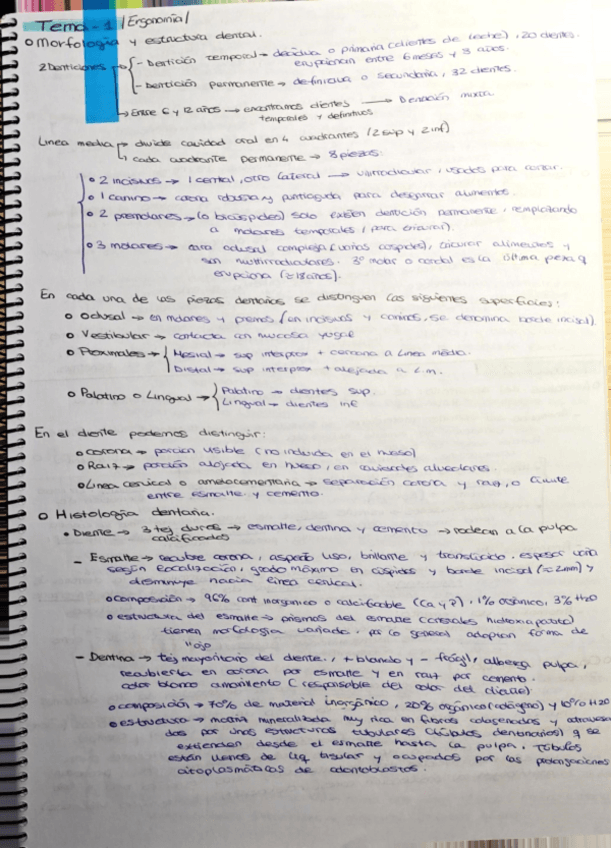 Tema-1 /Ergonomia/
o Morfologia y estructura dental.
2 Denticiones → - Dentición temporal → decidua o primaria (dientes de leche), 20 dientes.
erupcionan entre 6 meses y 3 años.
- Dentición permanente → definitiva o secundaria, 32 dientes.
→ Entre 6 y 12 años → encontramos dientes → Dentición mixta.
temporales y definitivos
Linea media → divide cavidad oral en 4 cuadrantes (2 sup y 2 inf)
↳ cada cuadrante permanente → 8 piezas:
• 2 incisivos → 1 central, otro lateral → unirradicular, usados para cortar.
• 1 canino → corona robusta y puntiaguda para desgarrar alimentos.
• 2 premolares → (o bicúspides) solo existen dentición permanente, remplazando
a molares temporales (para triturar).
• 3 molares → cara oclusal compleja (varias cúspides), triturar alimentos y
son multirradiculares. 3º molar o cordal es la última pieza q
erupciona (≈18 años).
En cada una de las piezas dentarias se distinguen las siguientes superficies:
o Oclusal → en molares y premol (en incisivos y caninos, se denomina borde incisal)
o Vestibular → contacta con mucosa yugal
o Proximales → Mesial → sup interprox + cercana a Linea média.
Distal → sup interprox + alejada a L.m.
o Palatino o Lingual → Palatino → dientes sup.
Lingual → dientes inf
En el diente podemos distinguir:
o corona → porcion visible (no incluida en el hueso)
o Raiz → porción alojada en hueso, en cavidades alveolares.
o Linea cervical o amelocementaria → separación corona y raiz, o límite
entre esmalte y cemento.
o Histologia dentaria.
• Diente → 3 tej duros → esmalte, dentina y cemento → rodean a la pulpa
calcificados
- Esmalte → recubre corona, aspecto liso, brillante y translúcido. espesor varia
según localización, grado máximo en cúspides y borde incisal (≈2mm) y
disminuye hacia linea cervical.
o composición → 96% cont inorganico o calcificable (Ca y P), 1% orgánico, 3% H2O
o estructura del esmalte → prismas del esmalte (cristales hidroxiapatita)
tienen morfologia variada. por lo general adoptan forma de
"ojo
- Dentina → tej mayoritario del diente, + blando y - frágil, alberga pulpa,
recubierta en corona por esmalte y en raiz por cemento.
color blanco amarillento (responsable del color del diente).
o composición → 70% de material inorgánico, 20% orgánico (colágeno) y 10% H2O
o estructura → matriz mineralizada muy rica en fibras colagenadas y atravesa
das por unas estructuras tubulares (túbulos dentinarios) q se
extienden desde el esmalte hasta la pulpa. Túbulos
están llenos de liq tisular y ocupados por las prolongaciones
citoplasmáticas de odontoblastos.